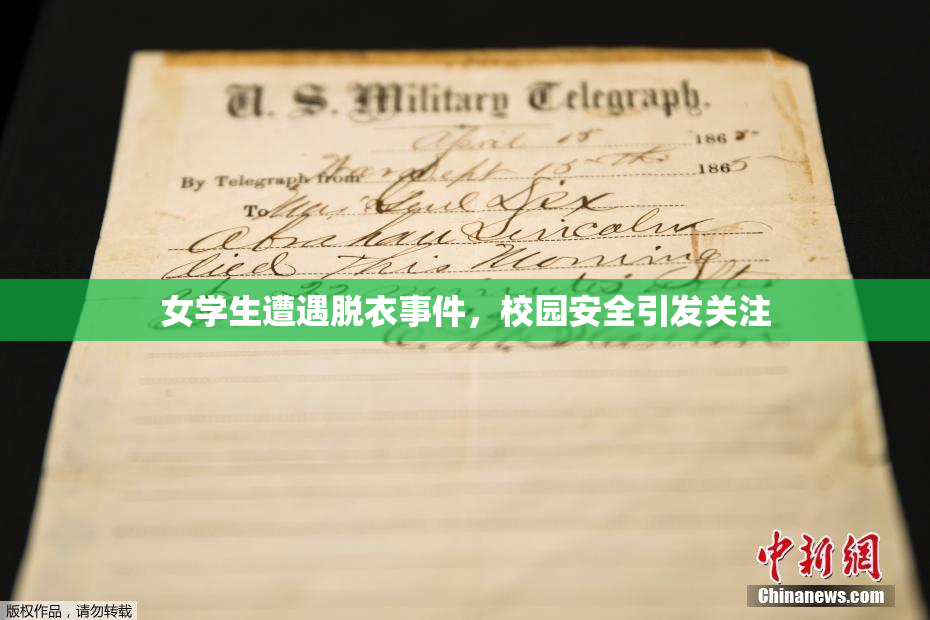 U. S. Military Telegraph.
April 15 1865
By Telegraph from War Dept 15th 1865
To Maj Genl Dix
Abraham Lincoln
died This Morning
22 minutes after
女学生遭遇脱衣事件，校园安全引发关注
中新网
Chinanews.com
版权作品，请勿转载